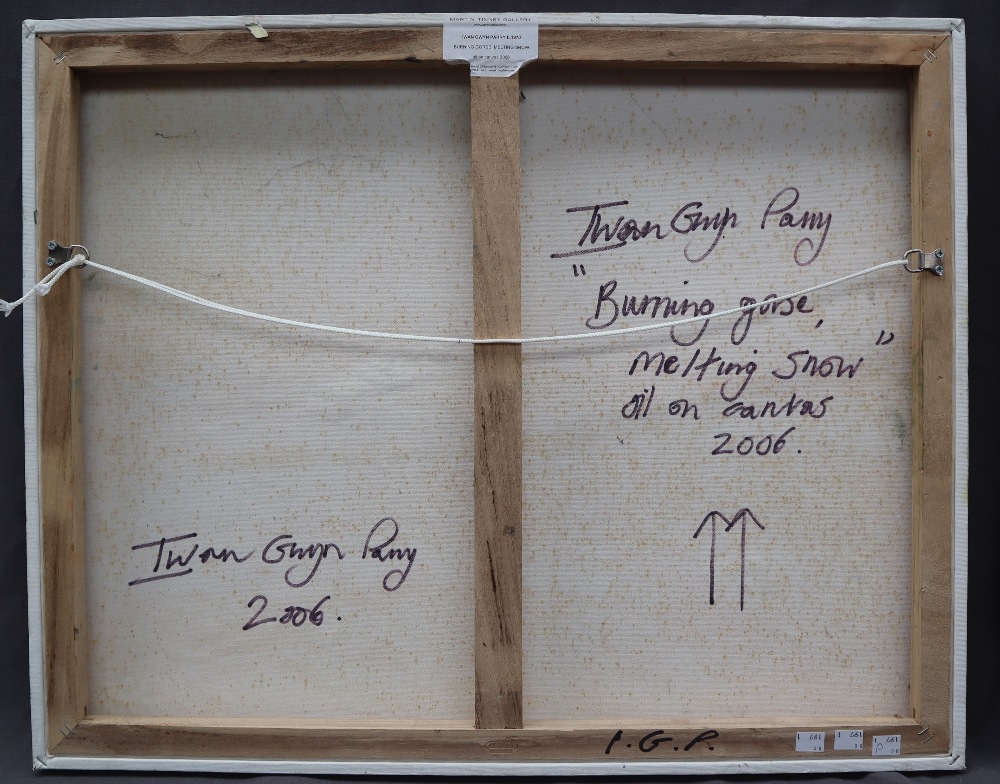 MARTIN TINNEY GALLERY
IWAN GWYN PARRY b.1970
BURNING GORSE, MELTING SNOW
oil on canvas 2006
Iwan Gwyn Parry
"Burning gorse,
Melting Snow"
oil on canvas
2006.
Iwan Gwyn Parry
2006.
I.G.P.